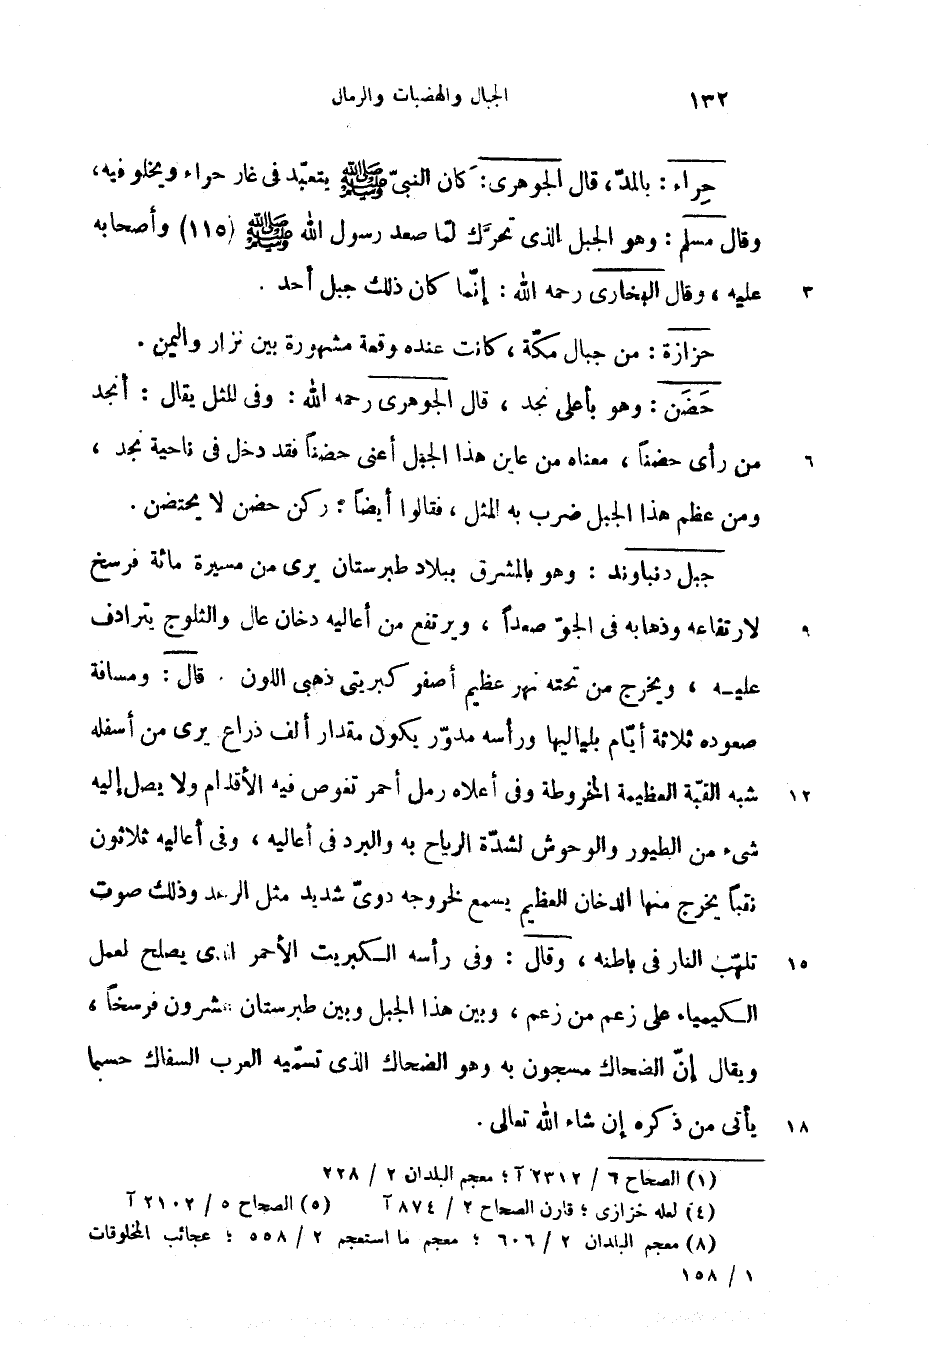 ١٣٢ الجبال والهضبات والرمال
حِراء : بالمدّ، قال الجوهرى: كان النبىّ ﷺ يتعبّد فى غار حراء ويخلو فيه،
وقال مسلم : وهو الجبل الذى تحرّك لمّا صعد رسول الله ﷺ (١١٥) وأصحابه
٣ عليه ، وقال البخارى رحمه الله : إنّما كان ذلك جبل أحد .
حزازة : من جبال مكّة ، كانت عنده وقعة مشهورة بين نزار واليمن .
حَضَن : وهو بأعلى نجد ، قال الجوهرى رحمه الله : وفى المثل يقال : أنجد
٦ من رأى حضناً ، معناه من عاين هذا الجبل أعنى حضناً فقد دخل فى ناحية نجد ،
ومن عظم هذا الجبل ضرب به المثل ، فقالوا أيضاً : ركن حضن لا يحتضن .
جبل دنباوند : وهو بالمشرق ببلاد طبرستان يرى من مسيرة مائة فرسخ
٩ لارتفاعه وذهابه فى الجوّ صعداً ، ويرتفع من أعاليه دخان عال والثلوج يترادف
عليـه ، ويخرج من تحته نهر عظيم أصفر كبريتى ذهبى اللون . قال : ومسافة
صعوده ثلاثة أيّام بلياليها ورأسه مدوّر يكون مقدار ألف ذراع يرى من أسفله
١٢ شبه القبّة العظيمة المخروطة وفى أعلاه رمل أحمر تغوص فيه الأقدام ولا يصل إليه
شىء من الطيور والوحوش لشدّة الرياح به والبرد فى أعاليه ، وفى أعاليه ثلاثون
نقباً يخرج منها الدخان العظيم يسمع لخروجه دوىّ شديد مثل الرعد وذلك صوت
١٥ تلهّب النار فى باطنه ، وقال : وفى رأسه الـكبريت الأحمر الذى يصلح لعمل
الـكيمياء على زعم من زعم ، وبين هذا الجبل وبين طبرستان عشرون فرسخاً ،
ويقال إنّ الضحاك مسجون به وهو الضحاك الذى تسمّيه العرب السفاك حسبما
١٨ يأتى من ذكره إن شاء الله تعالى .
(١) الصحاح ٦ / ٢٣١٢ آ ؛ معجم البلدان ٢ / ٢٢٨
(٤) لعله خزازى ؛ قارن الصحاح ٢ / ٨٧٤ آ (٥) الصحاح ٥ / ٢١٠٢ آ
(٨) معجم البلدان ٢ / ٦٠٦ ؛ معجم ما استعجم ٢ / ٥٥٨ ؛ عجائب المخلوقات
١ / ١٥٨